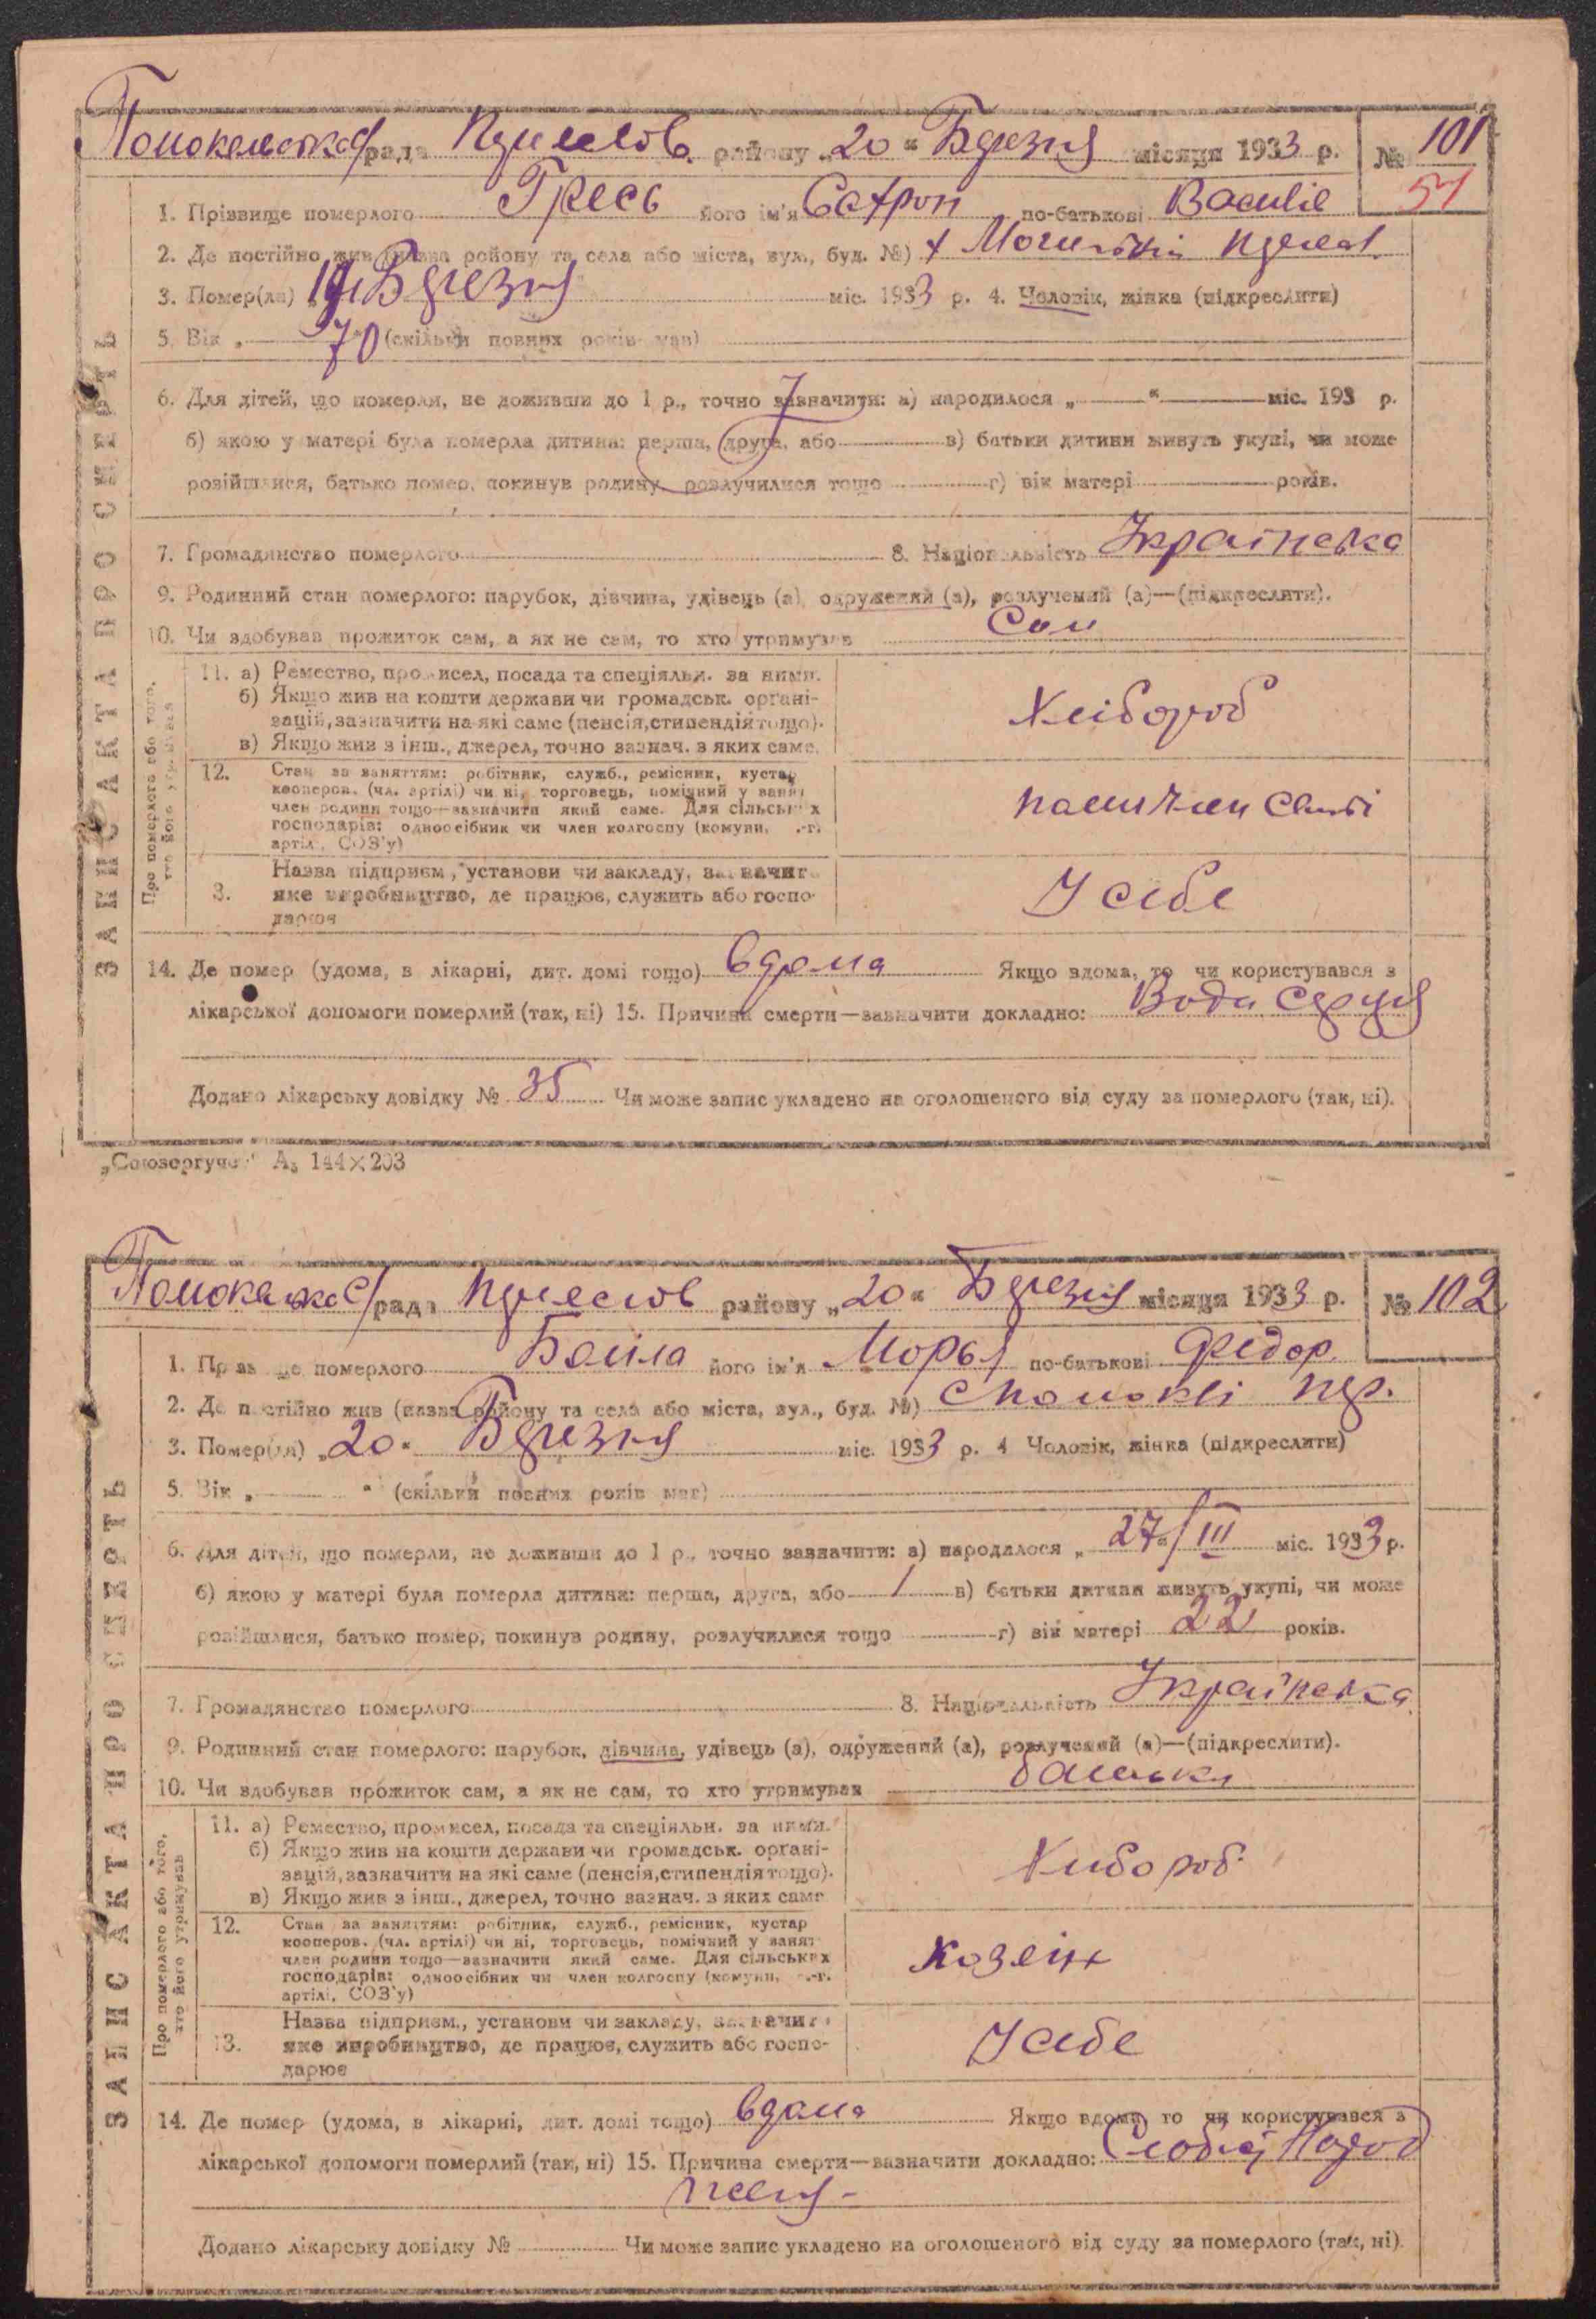 рада району „20“ Березня місяця 1933 р. № 101
51
1. Прізвище померлого Гресь його ім'я по-батькові Василів
2. Де постійно жив (назва району та села або міста, вул., буд. №) х
3. Помер(ла) Березня міс. 1933 р. 4. Чоловік, жінка (підкреслити)
5. Вік „ 70 (скільки повних років мав)
6. Для дітей, що померли, не доживши до 1 р., точно зазначити: а) народилося „ “ міс. 193 р.
б) якою у матері була померла дитина: перша, друга, або в) батьки дитини живуть укупі, чи може
розійшлися, батько помер, покинув родину, розлучилися тощо г) вік матері років.
7. Громадянство померлого 8. Національність Українська
9. Родинний стан померлого: парубок, дівчина, удівець (а), одружений (а), розлучений (а)—(підкреслити).
10. Чи здобував прожиток сам, а як не сам, то хто утримував Сам
ЗАПИС АКТА ПРО СМЕРТЬ
Про померлого або того,
хто його утримував
11. а) Ремество, промисел, посада та спеціяльн. за ними.
б) Якщо жив на кошти держави чи громадськ. органі-
зацій, зазначити на які саме (пенсія, стипендія тощо).
в) Якщо жив з інш., джерел, точно зазнач. з яких саме.
Хлібороб
12. Стан за заняттям: робітник, служб., ремісник, кустар
кооперов. (чл. артілі) чи ні, торговець, помічний у занят
член родини тощо—зазначити який саме. Для сільських
господарів: одноосібник чи член колгоспу (комуни, с.-г.
артілі, СОЗ'у)
13. Назва підприєм., установи чи закладу, зазначити
яке виробництво, де працює, служить або госпо-
дарює
У себе
14. Де помер (удома, в лікарні, дит. домі тощо) вдома Якщо вдома, то чи користувався з
лікарської допомоги померлий (так, ні) 15. Причина смерти—зазначити докладно: Вода серця
Додано лікарську довідку № 35 Чи може запис укладено на оголошеного від суду за померлого (так, ні).
„Союзоргучет“ А₅ 144×203
рада району „20“ Березня місяця 1933 р. № 102
1. Прізвище померлого його ім'я Морья по-батькові Федор.
2. Де постійно жив (назва району та села або міста, вул., буд. №) пер.
3. Помер(ла) „20“ Березня міс. 1933 р. 4 Чоловік, жінка (підкреслити)
5. Вік „ “ (скільки повних років мав)
6. Для дітей, що померли, не доживши до 1 р., точно зазначити: а) народилося „27“/III міс. 1933 р.
б) якою у матері була померла дитина: перша, друга, або 1 в) батьки дитини живуть укупі, чи може
розійшлися, батько помер, покинув родину, розлучилися тощо г) вік матері 22 років.
7. Громадянство померлого 8. Національність Українська
9. Родинний стан померлого: парубок, дівчина, удівець (а), одружений (а), розлучений (а)—(підкреслити).
10. Чи здобував прожиток сам, а як не сам, то хто утримував батьки
ЗАПИС АКТА ПРО СМЕРТЬ
Про померлого або того,
хто його утримував
11. а) Ремество, промисел, посада та спеціяльн. за ними.
б) Якщо жив на кошти держави чи громадськ. органі-
зацій, зазначити на які саме (пенсія, стипендія тощо).
в) Якщо жив з інш., джерел, точно зазнач. з яких саме
Хлібороб
12. Стан за заняттям: робітник, служб., ремісник, кустар
кооперов. (чл. артілі) чи ні, торговець, помічний у занят
член родини тощо—зазначити який саме. Для сільських
господарів: одноосібник чи член колгоспу (комуни, с.-г.
артілі, СОЗ'у)
13. Назва підприєм., установи чи закладу, зазначити
яке виробництво, де працює, служить або госпо-
дарює
У себе
14. Де помер (удома, в лікарні, дит. домі тощо) вдома Якщо вдома, то чи користувався з
лікарської допомоги померлий (так, ні) 15. Причина смерти—зазначити докладно:
Додано лікарську довідку № Чи може запис укладено на оголошеного від суду за померлого (так, ні).